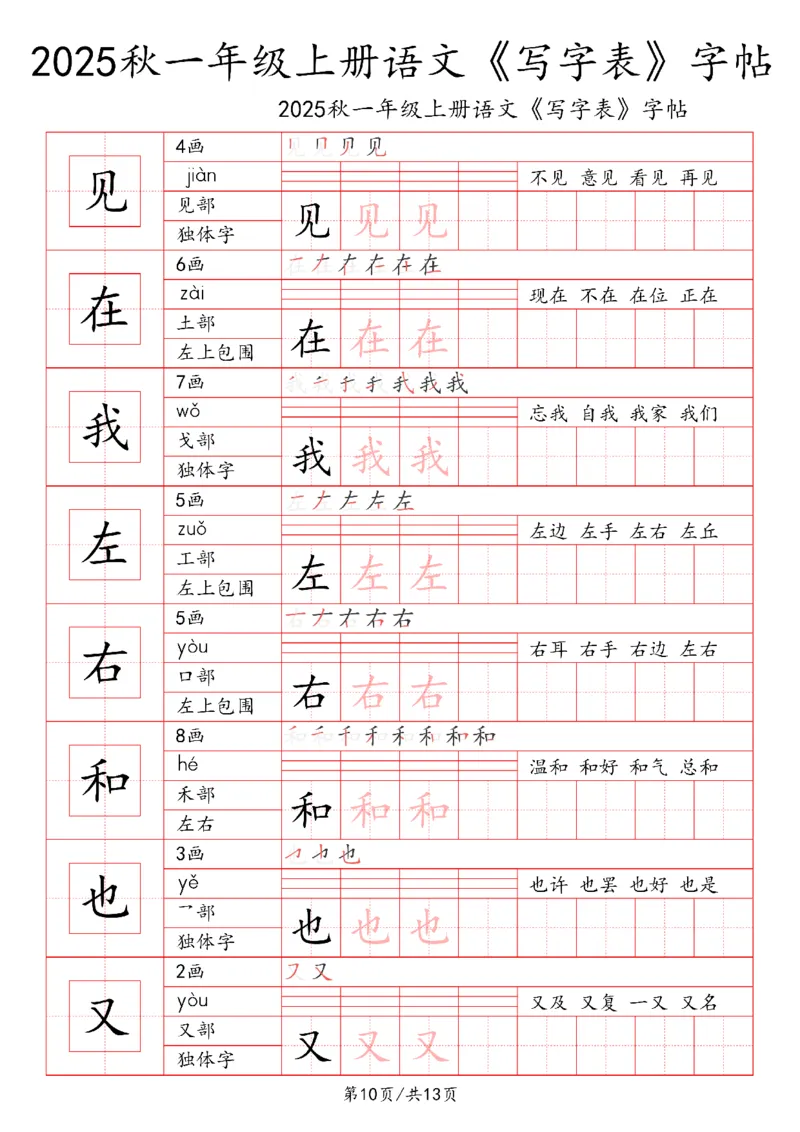 2025秋一年级上册语文《写字表》字帖
2025秋一年级上册语文《写字表》字帖
4画 见 见 见 见
见 jiàn 不见 意见 看见 再见
见部
独体字 见 见 见
6画 在 在 在 在 在 在
在 zài 现在 不在 在位 正在
土部
左上包围 在 在 在
7画 我 我 我 我 我 我 我
我 wǒ 忘我 自我 我家 我们
戈部
独体字 我 我 我
5画 左 左 左 左 左
左 zuǒ 左边 左手 左右 左丘
工部
左上包围 左 左 左
5画 右 右 右 右 右
右 yòu 右耳 右手 右边 左右
口部
左上包围 右 右 右
8画 和 和 和 和 和 和 和 和
和 hé 温和 和好 和气 总和
禾部
左右 和 和 和
3画 也 也 也
也 yě 也许 也罢 也好 也是
乛部
独体字 也 也 也
2画 又 又
又 yòu 又及 又复 一又 又名
又部
独体字 又 又 又
第10页/共13页